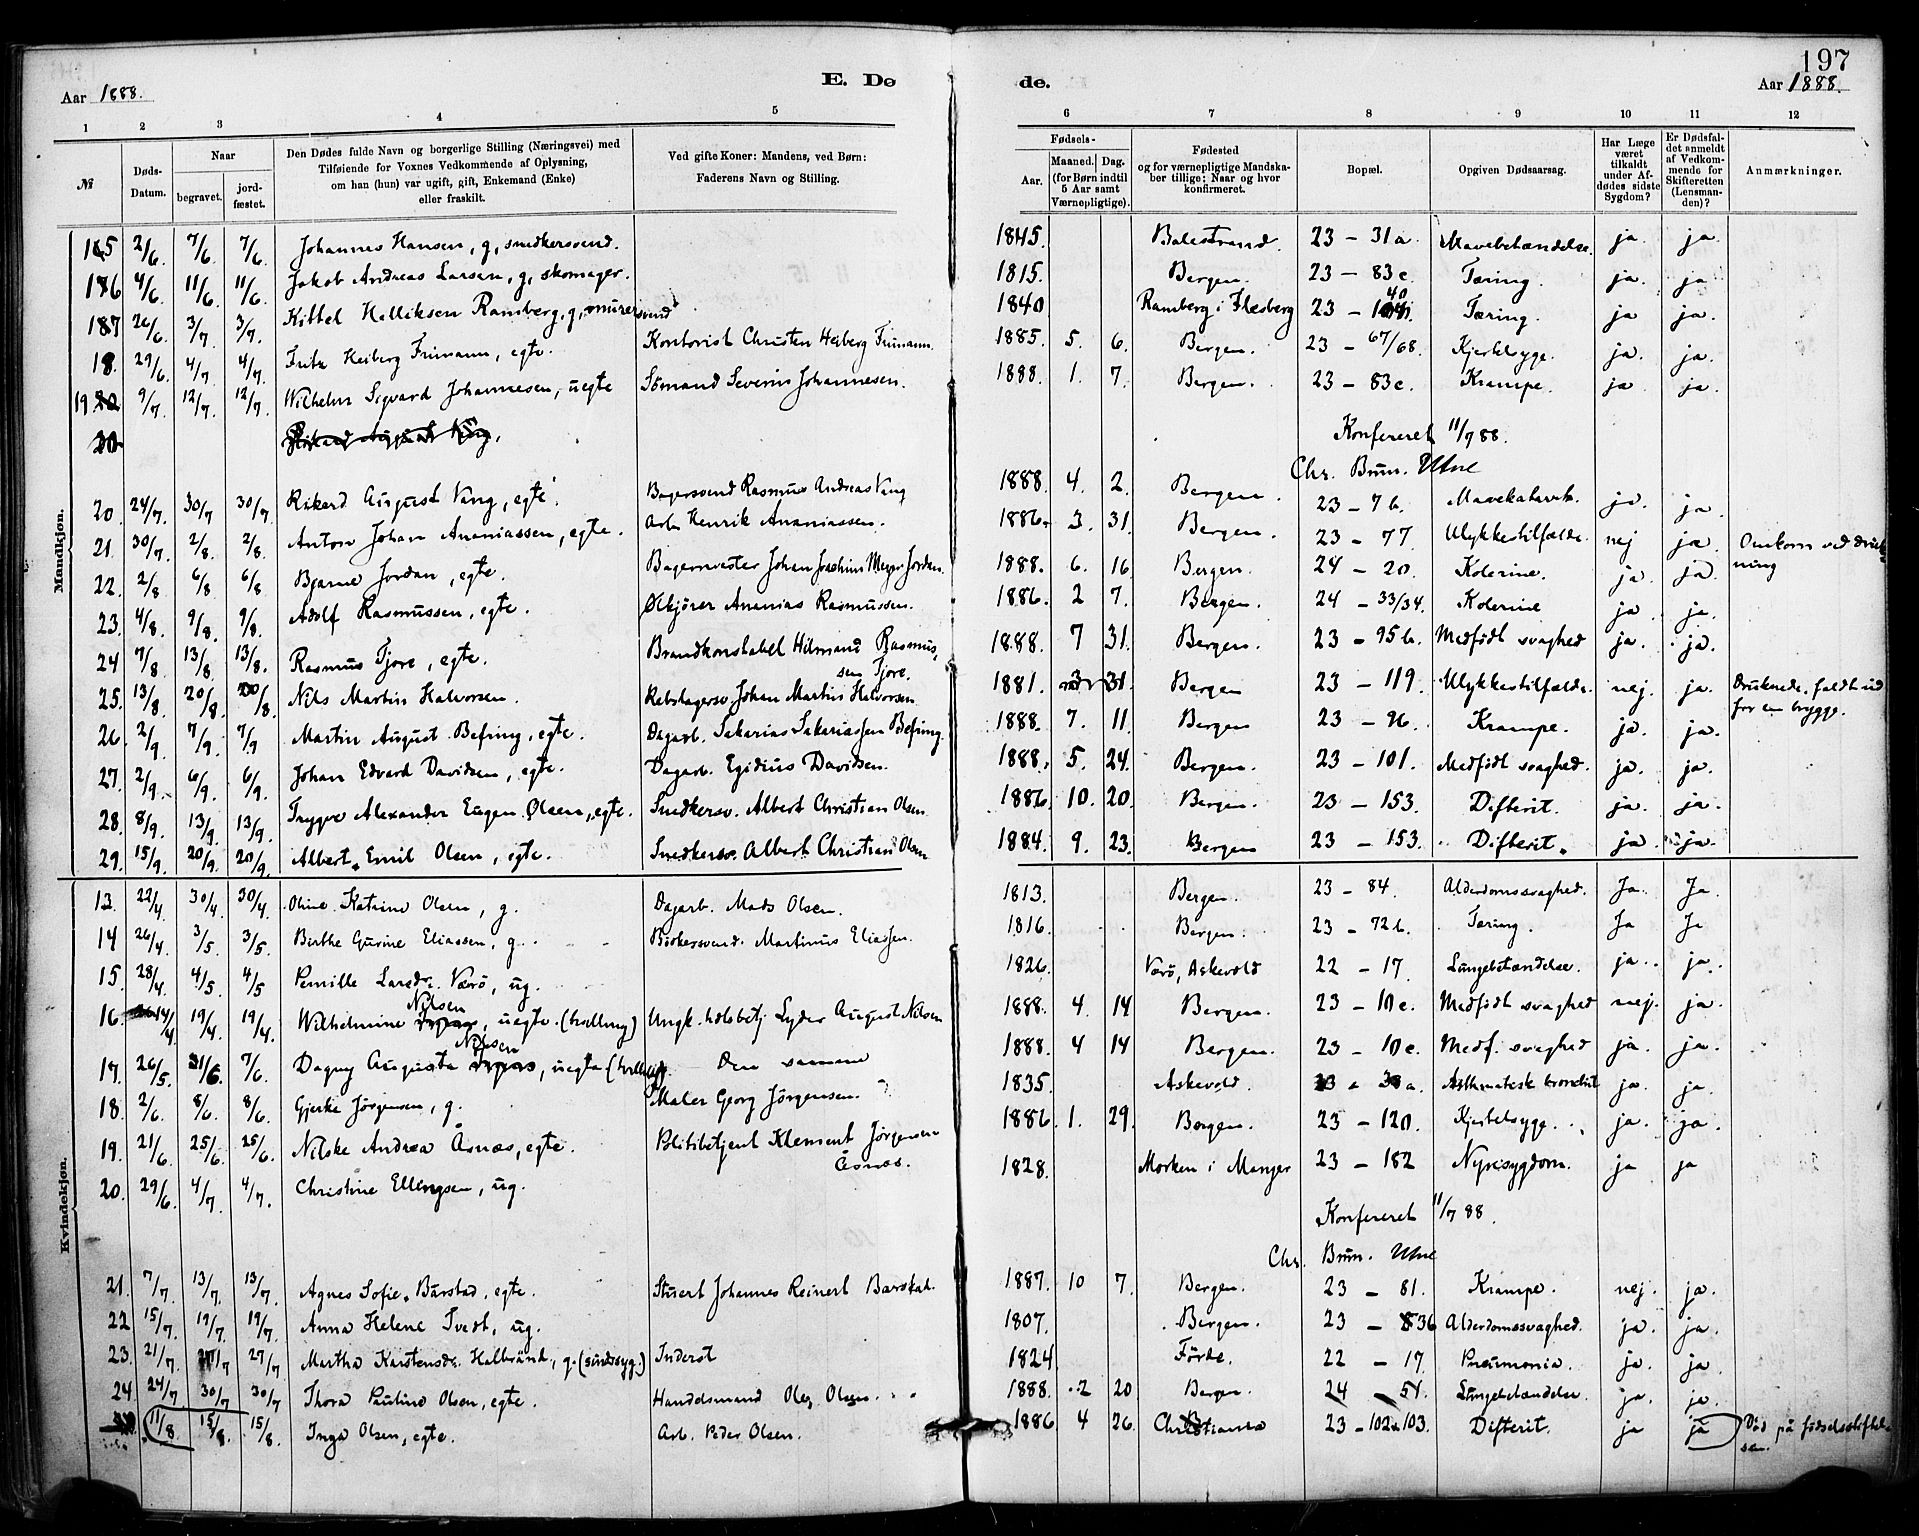 197
Aar 1888. E. Døde. Aar 1888.
1 2 3 4 5 6 7 8 9 10 11 12
№ Døds-Datum. Naar begravet. jordfæstet. Den Dødes fulde Navn og borgerlige Stilling (Næringsvei) med Tilføiende for Voxnes Vedkommende af Oplysning, om han (hun) var ugift, gift, Enkemand (Enke) eller fraskilt. Ved gifte Koner: Mandens, ved Børn: Faderens Navn og Stilling. Fødsels- Aar. Maaned. Dag. (for Børn indtil 5 Aar samt Værnepligtige). Fødested og for værnepligtige Mandskaber tillige; Naar og hvor konfirmeret. Bopæl. Opgiven Dødsaarsag. Har Læge været tilkaldt under Afdødes sidste Sygdom? Er Dødsfaldet anmeldt af Vedkommende for Skifteretten (Lensmanden)? Anmærkninger.
Mandkjøn.
15 2/6. 7/6. 7/6. Johannes Hansen, g, snedkersvend. 1845. Balestrand. 23 – 31a. Mavebetændelse. ja. ja.
16 4/6. 11/6. 11/6. Jakob Andreas Larsen, g, skomager. 1815. Bergen. 23 – 83c. Tæring. ja. ja
17 26/6. 3/7. 3/7. Kittel Helliksen Ramberg, g, murersvend 1840 Ramberg i Flesberg 23 – Tæring. ja ja.
18. 29/6. 4/7. 4/7. Fritz Heiberg Frimann, egte. Kontorist Christen Heiberg Frimann. 1885. 5. 6. Bergen. 23 – 67/68. Kjertelsyge. ja. ja.
19 9/7. 12/7. 12/7. Wilhelm Sigvard Johannesen, uegte Sömand Severin Johannesen. 1888. 1. 7. Bergen. 23 – 83c. Krampe. ja. ja.
20 Rikard August Vang. Konfereret 11/7 88.
Chr. Brun. Utne
20. 24/7. 30/7 30/7. Rikard August Vang, egte. Bagersvend Rasmus Andreas Vang 1888. 4. 2. Bergen. 23 – 7b. Mavekatarrh. ja. ja.
21. 30/7. 2/8. 2/8. Anton Johan Ananiassen, egte. Arb. Henrik Ananiassen. 1886. 3. 31. Bergen. 23 – 77. Ulykkestilfælde. nej ja. Omkom ved drukning
22. 2/8. 6/8. 6/8. Bjarne Jordan, egte. Bagermester Johan Joachim Meyer Jordan. 1888. 6. 16 Bergen. 24 – 20. Kolerine. ja. ja.
23. 4/8. 9/8. 9/8. Adolf Rasmussen, egte. Ölkjörer Ananias Rasmussen. 1886. 2 7. Bergen. 24 – 33/34. Kolerine ja ja.
24 7/8. 13/8. 13/8. Rasmus Tjore, egte. Brandkonstabel Hilmand Rasmussen Tjore. 1888. 7 31. Bergen. 23 – 95b. Medfödt svaghed ja. ja.
25. 13/8. 20/8. 20/8. Nils Martin Halvorsen. Rebslagersv. Johan Martin Halvorsen 1881. 31. Bergen 23 – 119. Ulykkestilfælde. nej. ja. Druknede, faldt ud for en brygge.
26. 2/9. 7/9. 7/9 Martin August Befring, egte. Dagarb. Sakarias Sakariassen Befring. 1888. 7. 11. Bergen 23 – 26. Krampe. ja. ja.
27. 2/9. 6/9. 6/9. Johan Edvard Davidsen, egte. Dagarb. Egidius Davidsen. 1888. 5. 24. Bergen. 23 – 101. Medfödt svaghed. ja. ja.
28. 8/9. 13/9. 13/9. Trygve Alexander Eugen Olsen, egte. Snedkersv. Albert Christian Olsen 1886. 10. 20. Bergen. 23 – 153. Difterit. ja. ja.
29. 15/9. 20/9. 20/9. Albert Emil Olsen, egte. Snedkersv. Albert Christian Olsen 1884. 9. 23. Bergen 23 – 153. Difterit. ja. ja.
Kvindekjøn.
13. 22/4. 30/4. 30/4. Oline Katrine Olsen, g. Dagarb. Mads Olsen. 1813. Bergen. 23 – 84. Alderdomssvaghed. Ja. Ja
14 26/4. 3/5. 3/5. Birthe Gurine Eliassen, g. Bödkersvend. Martinus Eliassen. 1816. Bergen. 23 – 72b. Tæring. Ja Ja
15. 28/4. 4/5. 4/5 Pernille Larsdr. Værö, ug. 1826. Værö, Askevold 22 – 17. Lungebetændelse. ja. ja.
16. 14/4 19/4. 19/4. Wilhelmine Nilsen, uegte. (tvilling) Ungk. Lyder August Nilsen 1888. 4 14 Bergen. 23 – 10c. Medfödt svaghed nej. ja.
17. 26/5. 31/5. 7/6. Dagny Augusta Nilsen, uegte (tvilling). Den samme 1888. 4 14 Bergen. 23 – 10c. Medf. svaghed ja. ja.
18. 2/6. 8/6. 8/6. Gjerke Jörgensen, g. Maler Georg Jörgensen. 1835. Askevold. 23 – a. Asthmatisk bronchit ja. ja
19. 21/6. 25/6. 25/6. Nilske Andrea Åsnæs, egte. Politibetjent Klement Jörgensen Åsnæs. 1886. 1. 29. Bergen. 23 – 120. Kjertelsyge. ja. ja.
20. 29/6. 4/7. 4/7. Christine Ellingsen, ug. 1828. Morken i Manger 23 – 182 Nyresygdom. ja ja
Konfereret 11/7 88.
Chr. Brun. Utne
21. 7/7. 13/7. 13/7. Agnes Sofie Barstad, egte. Stuert Johannes Reinert Barstad. 1887. 10 7. Bergen. 23 – 81. Krampe. nej. ja.
22 15/7. 19/7. 19/7. Anna Helene Tvedt, ug. 1807. Bergen. 23 – Alderdomssvaghed. ja. ja.
23. 21/7. 27/7 27/7 Martha Karstensdr. Halbränd, g. (sindssyg.) Inderst 1824 Förde. 22 – 17. Pneumonia. ja. ja
24 24/7 30/7 30/7 Thora Pauline Olsen, egte. Handelsmand Ole Olsen. 1888. 2 20 Bergen. 24 – 51. Lungebetændelse ja. ja.
11/8. 15/8. 15/8. Inga Olsen, egte. Arb. Peder Olsen. 1886 4 26. Christiania 23 – 102a 103. Difterit. ja ja Död på födselsstiftelsen.